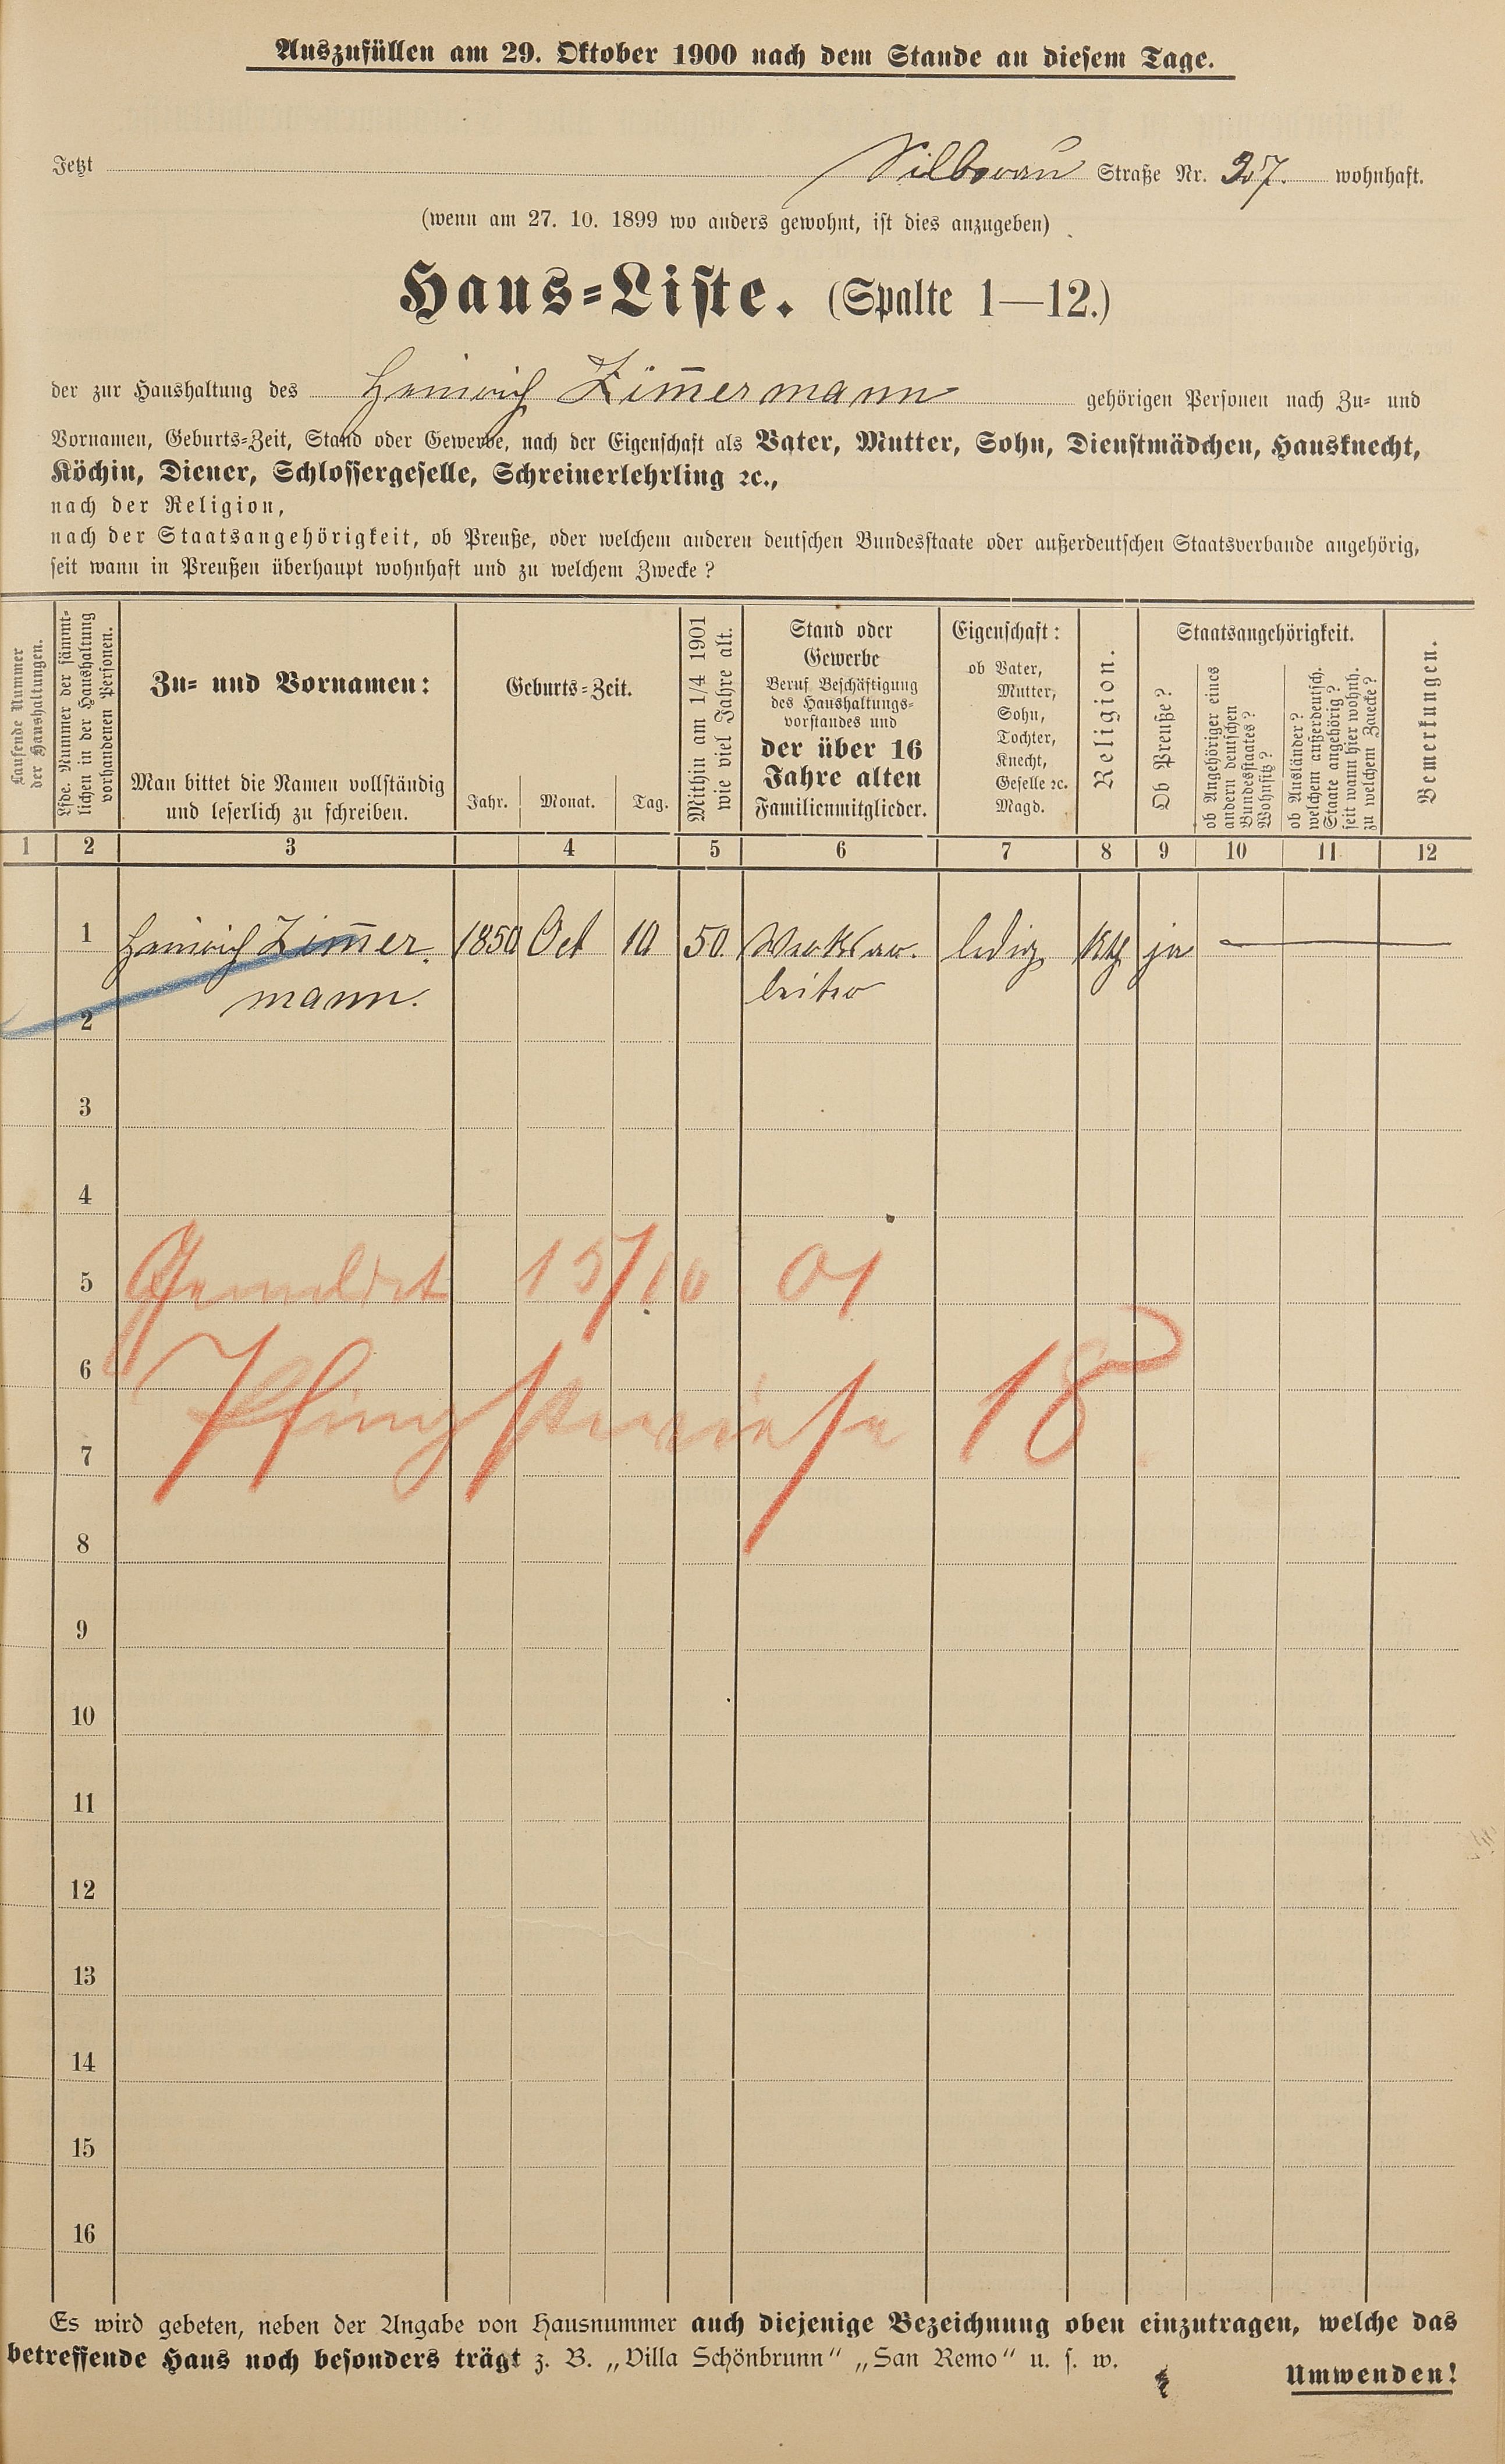 Auszufüllen am 29. Oktober 1900 nach dem Stande an diesem Tage.
Jetzt Silberau Straße Nr. 27. wohnhaft.
(wenn am 27. 10. 1899 wo anders gewohnt, ist dies anzugeben)
Haus=Liste. (Spalte 1—12.)
der zur Haushaltung des Heinrich Zim̄ermann gehörigen Personen nach Zu= und
Vornamen, Geburts=Zeit, Stand oder Gewerbe, nach der Eigenschaft als Vater, Mutter, Sohn, Dienstmädchen, Hausknecht,
Köchin, Diener, Schlossergeselle, Schreinerlehrling ꝛc.,
nach der Religion,
nach der Staatsangehörigkeit, ob Preuße, oder welchem anderen deutschen Bundesstaate oder außerdeutschen Staatsverbande angehörig,
seit wann in Preußen überhaupt wohnhaft und zu welchem Zwecke?
Laufende Nummer
der Haushaltungen.
Lfde. Nummer der sämmt=
lichen in der Haushaltung
vorhandenen Personen.
Zu= und Vornamen:
Man bittet die Namen vollständig
und leserlich zu schreiben.
Geburts=Zeit.
Jahr. Monat. Tag.
Mithin am 1/4 1901
wie viel Jahre alt.
Stand oder
Gewerbe
Beruf, Beschäftigung
des Haushaltungs=
vorstandes und
der über 16
Jahre alten
Familienmitglieder.
Eigenschaft:
ob Vater,
Mutter,
Sohn,
Tochter,
Knecht,
Geselle ꝛc.
Magd.
Religion.
Staatsangehörigkeit.
Ob Preuße?
ob Angehöriger eines
andern deutschen
Bundesstaates?
Wohnsitz?
ob Ausländer?
welchem außerdeutsch.
Staate angehörig?
seit wann hier wohnh.
zu welchem Zwecke?
Bemerkungen.
1 2 3 4 5 6 7 8 9 10 11 12
1 Heinrich Zim̄er. 1850 Oct 10 50. Werksar. ledig Kth ja
mann. beiter
2
3
4
5 Gemeldet 15/10 01
6
Pfingstwiese 18
7
8
9
10
11
12
13
14
15
16
Es wird gebeten, neben der Angabe von Hausnummer auch diejenige Bezeichnung oben einzutragen, welche das
betreffende Haus noch besonders trägt z. B. „Villa Schönbrunn“ „San Remo“ u. s. w.
Umwenden!